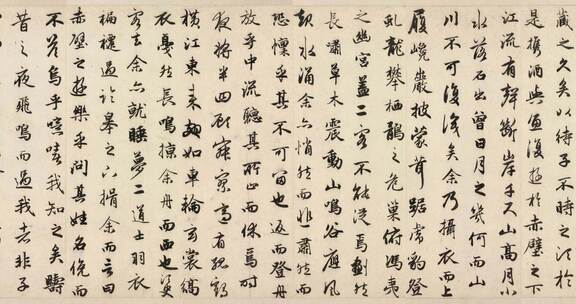 藏之久矣以待子不時之須於
是攜酒與魚復遊於赤壁之下
江流有聲斷岸千尺山高月小
水落石出曾日月之幾何而山
川不可復識矣余乃攝衣而上
履巉巖披蒙茸踞虎豹登
虬龍攀棲鶻之危巢俯馮夷
之幽宮蓋二客不能從焉劃然
長嘯草木震動山鳴谷應風
起水涌余亦悄然而悲肅然而
恐懍乎其不可留也返而登舟
放乎中流聽其所止而休焉時
夜將半四顧寂寥適有孤鶴
橫江東來翅如車輪玄裳縞
衣戛然長鳴掠余舟而西也須臾
客去余亦就睡夢二道士羽衣
蹁躚過臨皋之下揖余而言曰
赤壁之遊樂乎問其姓名俛而
不答嗚呼噫嘻我知之矣疇
昔之夜飛鳴而過我者非子